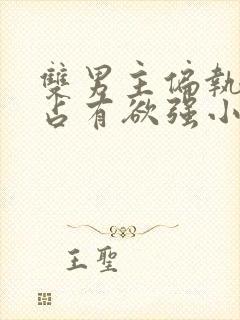 雙男主偏執
占有欲强小
王聖